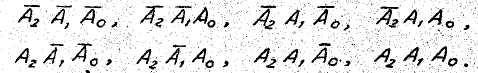 A̅₂ A̅₁ A̅₀, A̅₂ A̅₁ A₀, A̅₂ A₁ A̅₀, A̅₂ A₁ A₀,
A₂ A̅₁ A̅₀, A₂ A̅₁ A₀, A₂ A₁ A̅₀, A₂ A₁ A₀.